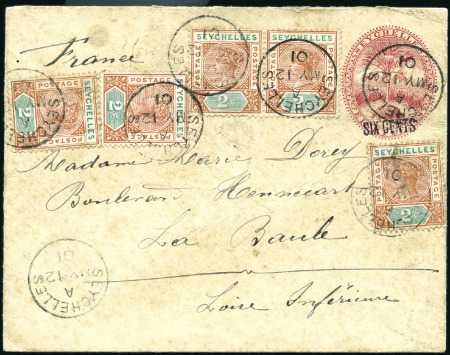 France
SEYCHELLES
SIX CENTS
SEYCHELLES POSTAGE 2
SEYCHELLES POSTAGE 2
SEYCHELLES POSTAGE 2
SEYCHELLES POSTAGE 2
SEYCHELLES POSTAGE 2
SEYCHELLES A MY 12 01
SEYCHELLES A MY 12 01
Madame Marie Dorey
Boulevard Hennecart
La Baule
Loire Inférieure
SEYCHELLES A MY 12 01